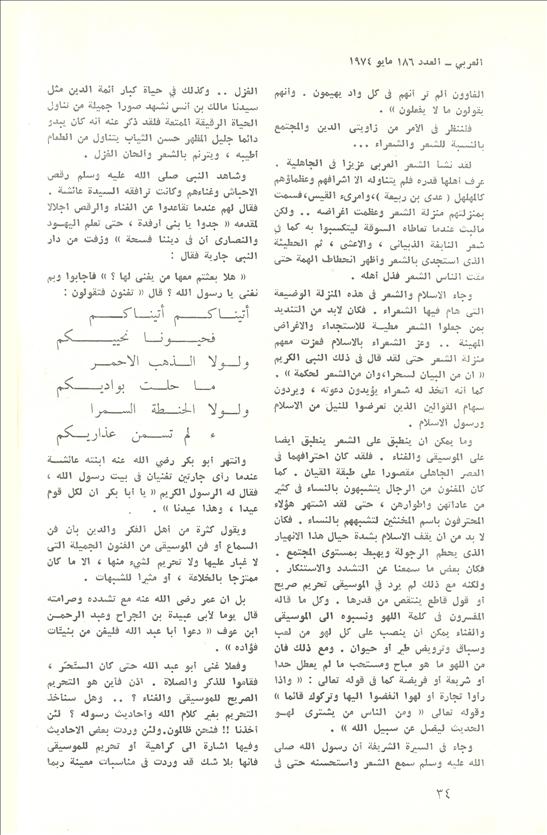 العربي – العدد ١٨٦ مايو ١٩٧٤
الغاوون ألم تر أنهم في كل واد يهيمون . وأنهم
يقولون ما لا يفعلون » .
فلننظر في الأمر من زاويتي الدين والمجتمع
بالنسبة للشعر والشعراء ...
لقد نشأ الشعر العربي عزيزا في الجاهلية .
عرف أهلها قدره فلم يتناوله الا أشرافهم وعظماؤهم
كالمهلهل ( عدي بن ربيعة )، وامرىء القيس، فسمت
بمنزلتهم منزلة الشعر وعظمت أغراضه .. ولكن
مالبث عندما تعاطاه السوقة ليتكسبوا به كما في
شعر النابغة الذبياني ، والأعشى ، ثم الحطيئة
الذي استجدى بالشعر وأظهر انحطاف الهمة حتى
مقت الناس الشعر فذل أهله .
وجاء الاسلام والشعر في هذه المنزلة الوضيعة
التي هام فيها الشعراء . فكان لابد من التنديد
بمن جعلوا الشعر مطية للاستجداء والأغراض
المهينة .. وعز الشعراء بالاسلام فعزت معهم
منزلة الشعر حتى لقد قال في ذلك النبي الكريم
« ان من البيان لسحرا، وان من الشعر لحكمة » .
كما أنه اتخذ له شعراء يؤيدون دعوته ، ويردون
سهام القوالين الذين تعرضوا للنيل من الاسلام
ورسول الاسلام .
وما يمكن أن ينطبق على الشعر ينطبق أيضا
على الموسيقى والغناء . فلقد كان احترافهما في
العصر الجاهلي مقصورا على طبقة القيان . كما
كان المغنون من الرجال يتشبهون بالنساء في كثير
من عاداتهن وأطوارهن ، حتى لقد اشتهر هؤلاء
المحترفون باسم المخنثين لتشبههم بالنساء . فكان
لا بد من أن يقف الاسلام بشدة حيال هذا الانهيار
الذي يحطم الرجولة ويهبط بمستوى المجتمع .
فكان بعض ما سمعنا عن التشدد والاستنكار .
ولكنه مع ذلك لم يرد في الموسيقى تحريم صريح
أو قول قاطع ينتقص من قدرها . وكل ما قاله
المفسرون في كلمة اللهو ونسبوه الى الموسيقى
والغناء يمكن أن ينصب على كل لهو من لعب
وسباق وترويض طير أو حيوان . ومع ذلك فان
من اللهو ما هو مباح ومستحب ما لم يعطل حدا
أو شريعة أو فريضة كما في قوله تعالى : « واذا
رأوا تجارة أو لهوا انفضوا اليها وتركوك قائما »
وقوله تعالى « ومن الناس من يشترى لهو
الحديث ليضل عن سبيل الله » .
وجاء في السيرة الشريفة أن رسول الله صلى
الله عليه وسلم سمع الشعر واستحسنه حتى في
الغزل .. وكذلك في حياة كبار أئمة الدين مثل
سيدنا مالك بن أنس نشهد صورا جميلة من تناول
الحياة الرقيقة الممتعة فلقد ذكر عنه أنه كان يبدو
دائما جليل المظهر حسن الثياب يتناول من الطعام
أطيبه ، ويترنم بالشعر وألحان الغزل .
وشاهد النبي صلى الله عليه وسلم رقص
الأحباش وغناءهم وكانت ترافقه السيدة عائشة .
فقال لهم عندما تقاعدوا عن الغناء والرقص اجلالا
لمقدمه « جدوا يا بنى أرفدة ، حتى تعلم اليهود
والنصارى أن في ديننا فسحة » وزفت من دار
النبي جارية فقال :
« هلا بعثتم معها من يغنى لها ؟ » فأجابوا وبم
نغنى يا رسول الله ؟ قال « تغنون فتقولون :
أتيناكم أتيناكم
فحيونا نحييكم
ولولا الذهب الأحمر
ما حلت بواديكم
ولولا الحنطة السمرا
ء لم تسمن عذاريكم
وانتهر أبو بكر رضي الله عنه ابنته عائشة
عندما رأى جارتين تغنيان في بيت رسول الله ،
فقال له الرسول الكريم « يا أبا بكر ان لكل قوم
عيدا ، وهذا عيدنا » .
ويقول كثرة من أهل الفكر والدين بأن فن
السماع أو فن الموسيقى من الفنون الجميلة التي
لا غبار عليها ولا تحريم لشيء منها ، الا ما كان
ممتزجا بالخلاعة ، أو مثيرا للشبهات .
بل ان عمر رضى الله عنه مع تشدده وصرامته
قال يوما لأبي عبيدة بن الجراح وعبد الرحمن
ابن عوف « دعوا أبا عبد الله فليغن من بنيات
فؤاده » .
وفعلا غنى أبو عبد الله حتى كان السحر ،
فقاموا للذكر والصلاة . اذن فأين هو التحريم
الصريح للموسيقى والغناء ؟ .. وهل سنأخذ
التحريم بغير كلام الله وأحاديث رسوله ؟ لئن
أخذنا !! فنحن ظالون. ولئن وردت بعض الأحاديث
وفيها اشارة الى كراهية أو تحريم للموسيقى
فانها بلا شك قد وردت في مناسبات معينة ربما
٣٤